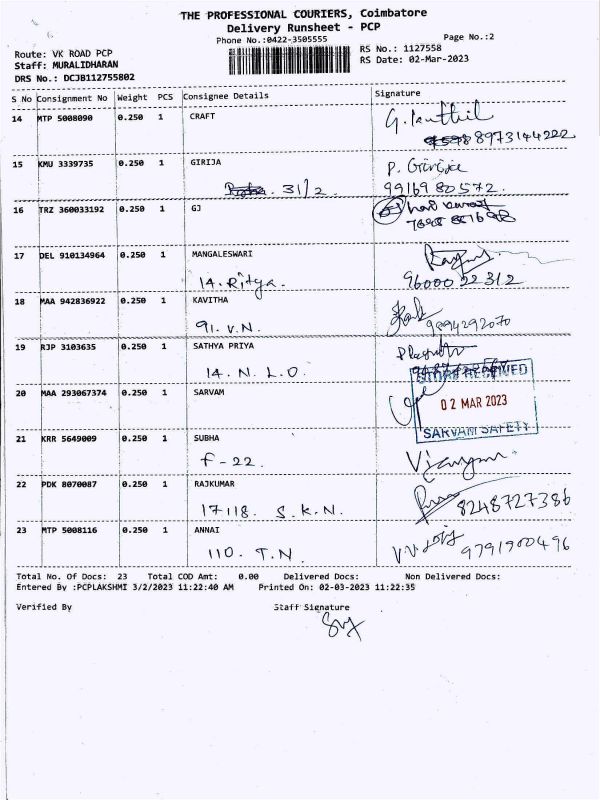 THE PROFESSIONAL COURIERS, Coimbatore
Delivery Runsheet - PCP
Phone No.:0422-3505555
Page No.:2
Route: VK ROAD PCP
RS No.: 1127558
Staff: MURALIDHARAN
RS Date: 02-Mar-2023
DRS No.: DCJB112755802
S No Consignment No Weight PCS Consignee Details Signature
14 MTP 5008090 0.250 1 CRAFT
8973144222
15 KMU 3339735 0.250 1 GIRIJA P. Girija
31/2. 9916980572.
16 TRZ 360033192 0.250 1 GJ
17 DEL 910134964 0.250 1 MANGALESWARI
14. Ritya. 9600022312
18 MAA 942836922 0.250 1 KAVITHA
91. V.N. 9894292070
19 RJP 3103635 0.250 1 SATHYA PRIYA
14. N. L. O.
20 MAA 293067374 0.250 1 SARVAM
RECEIVED
02 MAR 2023
SARVAM SAFETY
21 KRR 5649009 0.250 1 SUBHA
F-22.
22 PDK 8070087 0.250 1 RAJKUMAR
17118. S.K.N. 8248727386
23 MTP 5008116 0.250 1 ANNAI
110. T.N. 9791900496
Total No. Of Docs: 23 Total COD Amt: 0.00 Delivered Docs: Non Delivered Docs:
Entered By :PCPLAKSHMI 3/2/2023 11:22:40 AM Printed On: 02-03-2023 11:22:35
Verified By Staff Signature